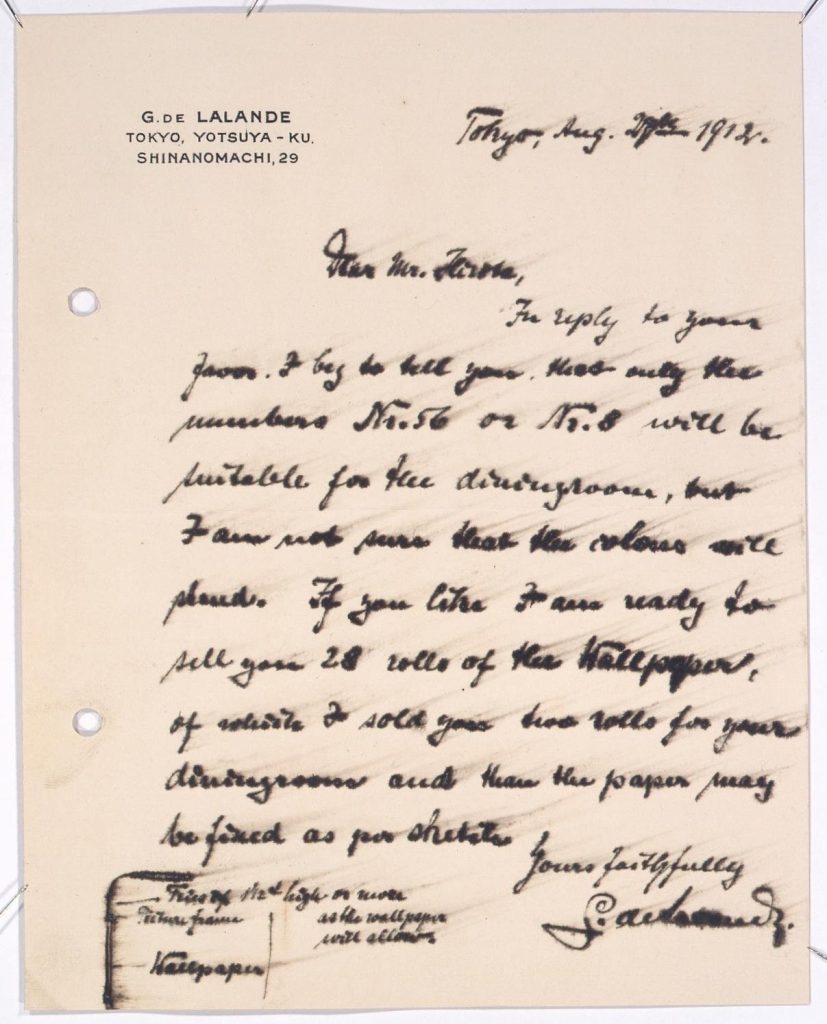 G. DE LALANDE
TOKYO, YOTSUYA - KU.
SHINANOMACHI, 29
Tokyo, Aug. 27th 1912.
Dear Mr.
In reply to your
favor. I beg to tell you that only the
numbers Nr. 56 or Nr. 8 will be
suitable for the diningroom, but
I am not sure that the colour will
stand. If you like I am ready to
sell you 28 rolls of the Wallpaper,
of which I sold you two rolls for your
diningroom and than the paper may
be fixed as per sketch
Yours faithfully
G. de Lalande.
high or more
Picture frame as the wallpaper
will allow
Wallpaper